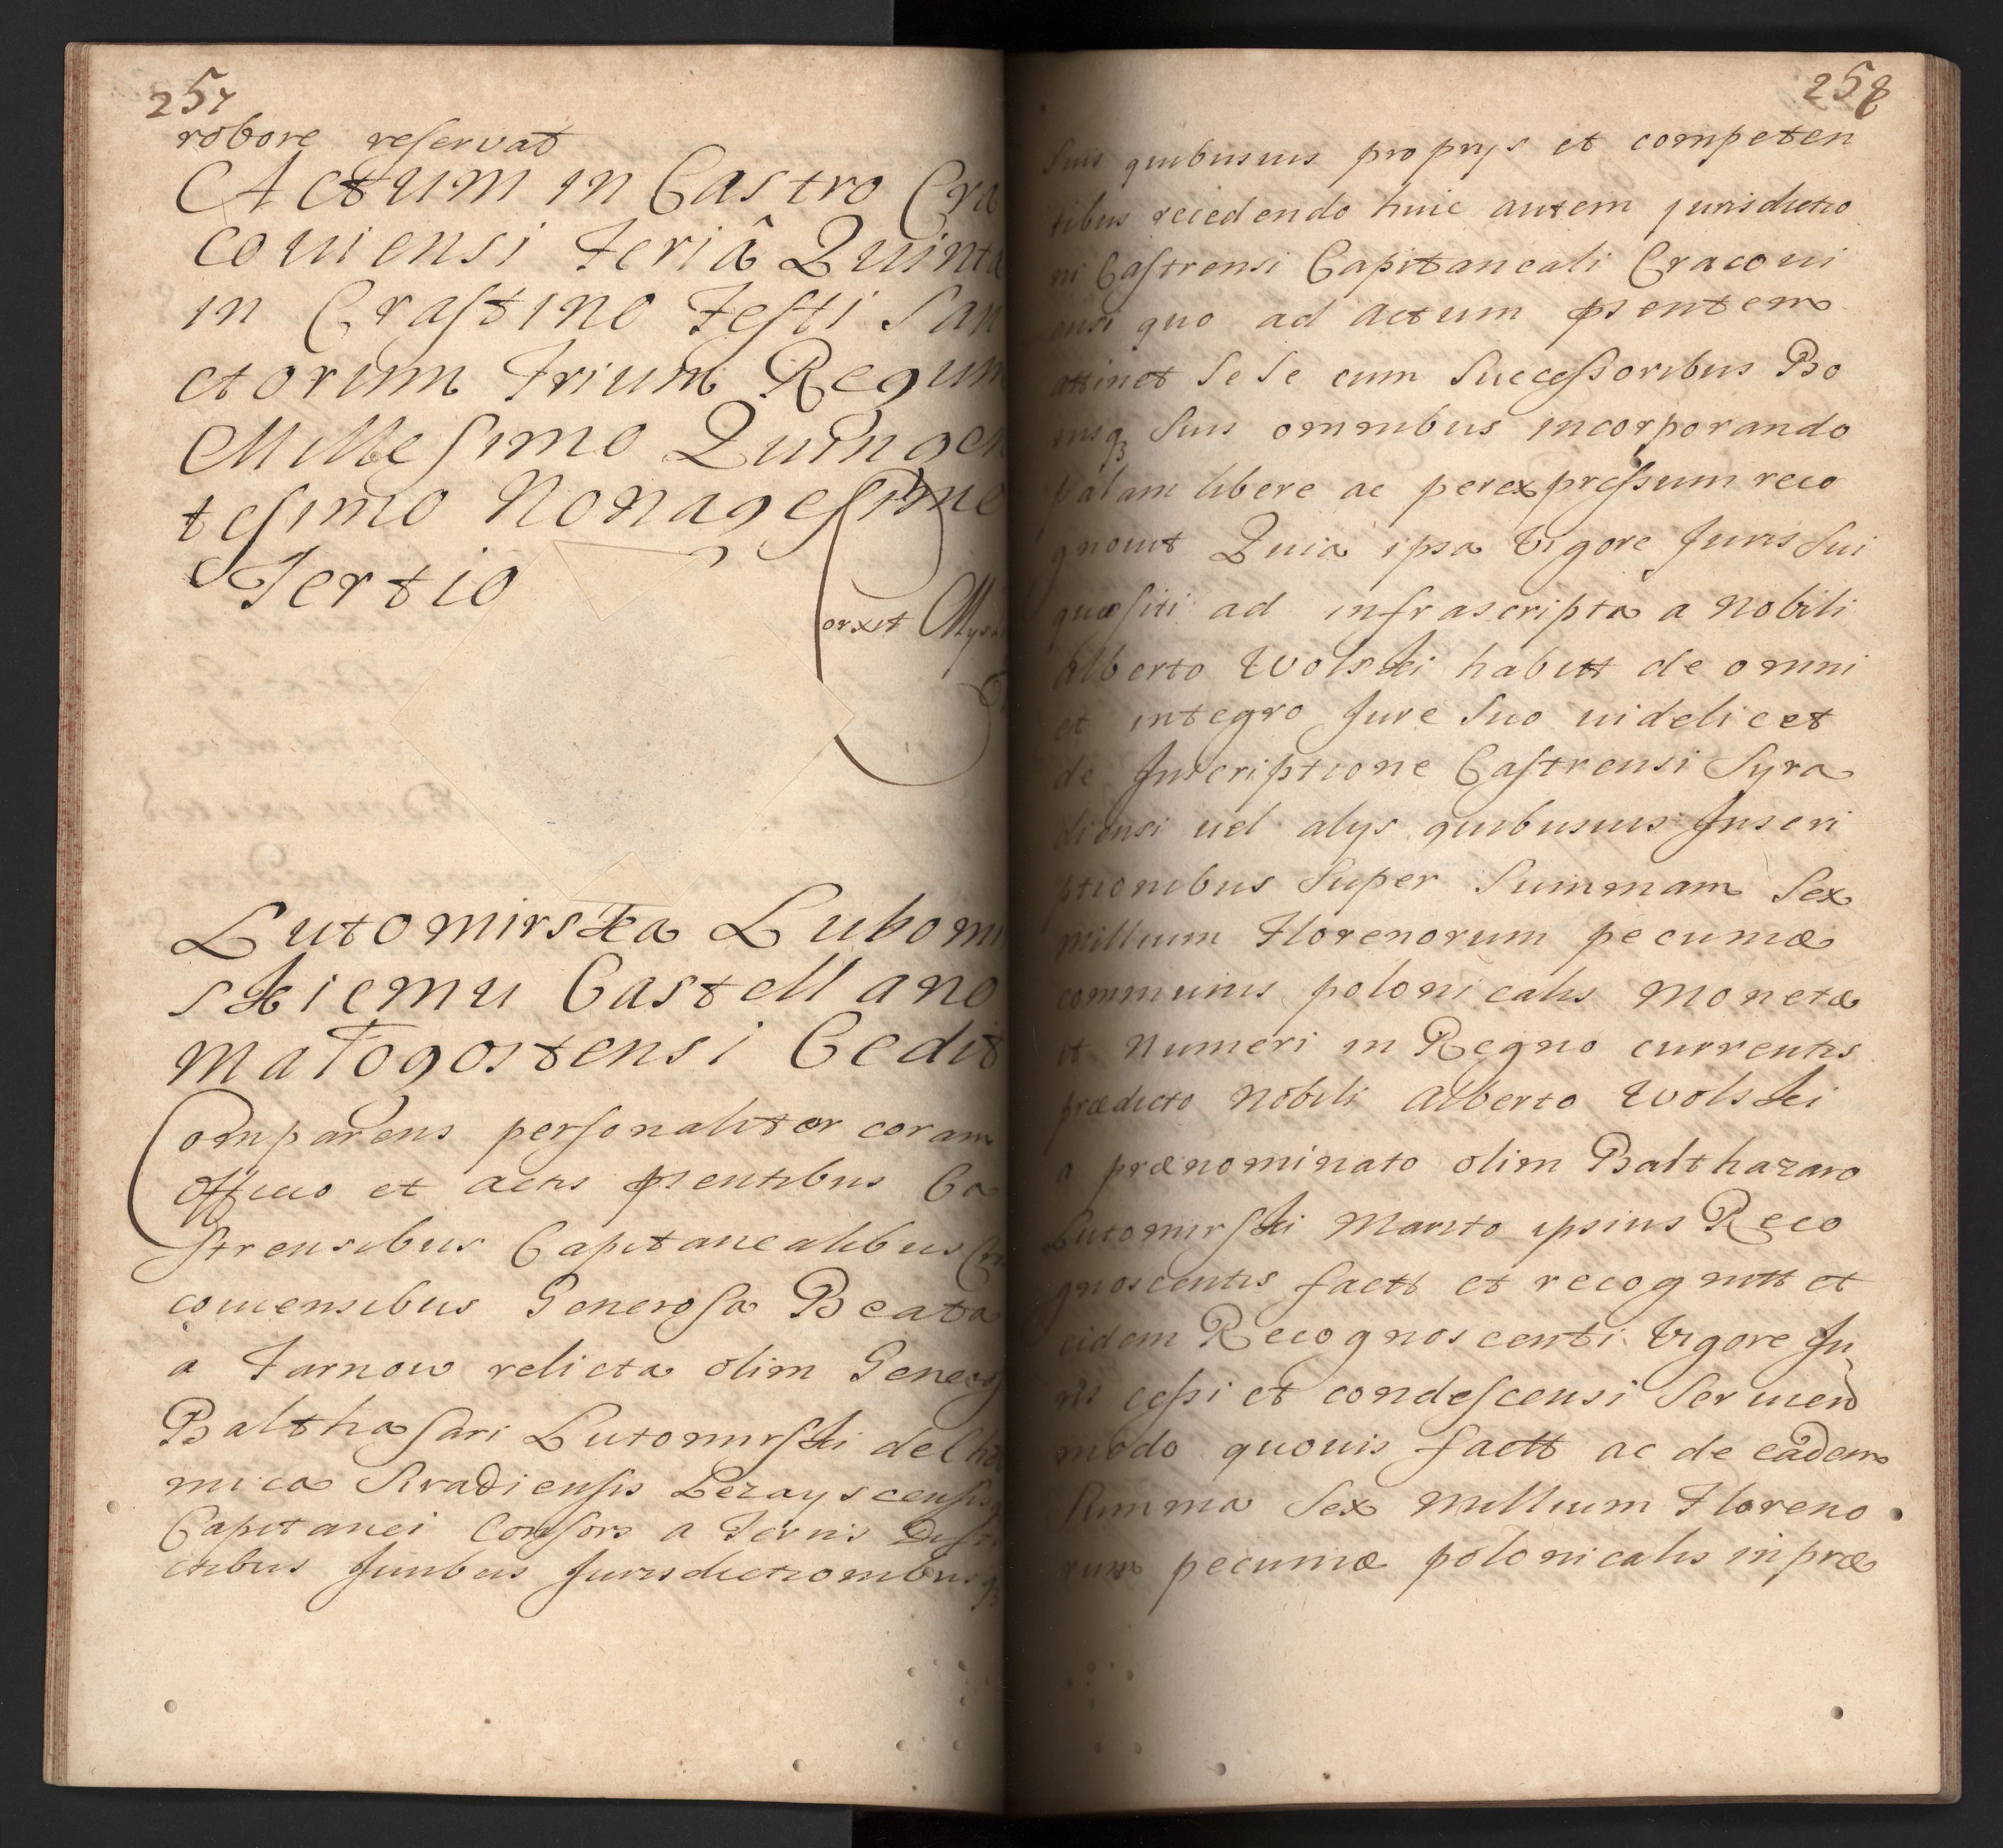 257
robore reservat
Actum in Castro Cra
coviensi Feriâ Quinta
in Crastino Festi San
ctorum Trium Regum
Millesimo Quingen
tesimo Nonagesimo
Tertio
orxit
Lutomirska Lubom
skiemu Castellano
małogostensi Cedit
Comparens personaliter coram
officio et actis pńentibus Ca
strensibus Capitanealibus Cra
couiensibus Generosa Beata
a Tarnow relicta olim Generosi
Balthasari Lutomirski
mica Siradiensis Lezayscensisq
Capitanei Consors a Terris Distri
ctibus Juribus Jurisdictionibusqȝ
258
Suis quibusuis proprys et competen
tibus recedendo huic autem jurisdictio
ni Castrensi Capitaneali Cracoui
ensi quo ad actum pńsentem
attinet Se Se cum Successoribus Bo
nisqȝ Suis omnibus incorporando
palam libere ac perexpressum reco
gnouit Quia ipsa Vigore Juris Sui
quæsiti ad infrascripta a Nobili
Alberto Wolski habitt de omni
et integro Jure Suo uidelicet
de Inscriptione Castrensi Syra
diensi uel alys quibusuis Inscri
ptionibus Super Summam Sex
millium Florenorum pecuniæ
communis polonicalis Monetæ
et Numeri in Regno currentis
prædicto Nobili Alberto Wolski
a prænominato olim Balthazaro
Lutomirski Marito ipsius Reco
gnoscentis factt et recognitt et
eidem Recognoscenti Vigore Ju
ris cessi et condescensi Seruien
modo quouis factt ac de eadem
Summa Sex Millium Floreno
rum pecuniæ polonicalis in præ